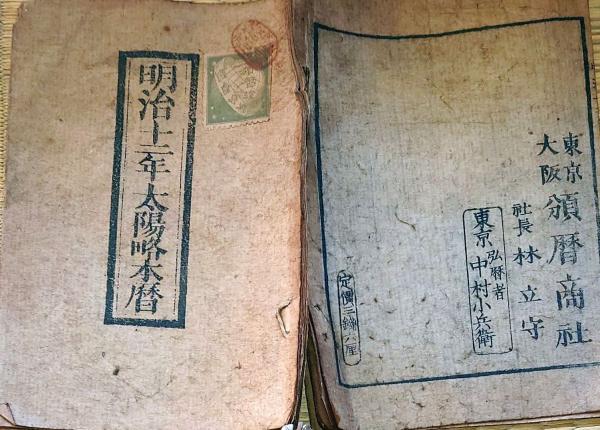 明治十二年太陽略本暦
東京
大阪
頒暦商社
社長 林立守
弘暦者
東京 中村小兵衛
定價三錢八厘